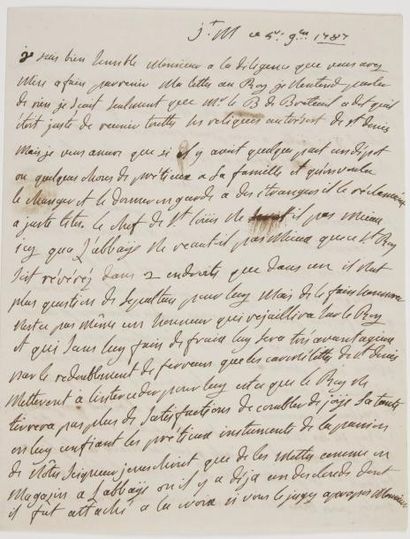 j + M ce 5e 9bre 1787
je suis bien sensible Monsieur a la diligence que vous avez
mise a faire parvenir Ma lettre au Roy je n'entend parler
de rien je scait seulement que Mr le B de Breteuil a dit qu'il
étoit juste de reunir touttes les reliques au tresort de st denis
Mais je vous avoue que si il y avoit quelque part un dépôt
ou quelques choses de prétieux a sa famille et qu'on voulu
le changer et le donner en garde a des étrangers il le réclameroit
a juste titre le chef de st Loüis ne il pas mieux
icy que L'abbaye ne vaut il pas mieux que ce st Roy
soit révéréz dans 2 endroits que dans un il n'est
plus question de sepulture pour luy Mais de le faire honorer
n'est ce pas même un honneur qui rejaillira sur le Roy
et qui sans luy faire de fraix luy sera très avantageux
par le redoublement de ferveur que les carmelittes de st denis
metteront a interceder pour luy est ce que le Roy ne
tirera pas plus de satisfactions de combler de joye sa tante
en luy confiant les prétieux instruments de la passion
de Notre Seigneur jesus christ que de les mettre comme en
Magazin a L'abbaye ou il y a deja un des cloux dont
il fut attâché a la croix si vous le jugez apropos Monsieur